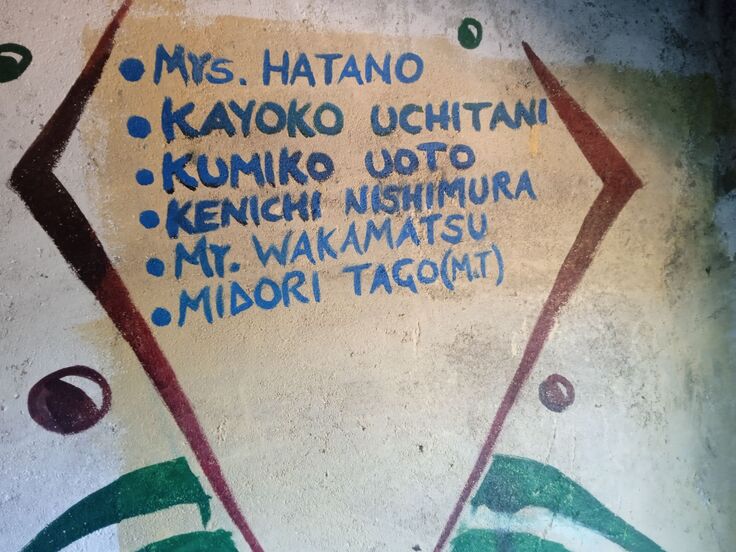 • Mrs. HATANO
• KAYOKO UCHITANI
• KUMIKO UOTO
• KENICHI NISHIMURA
• Mr. WAKAMATSU
• MIDORI TAGO (M.T)